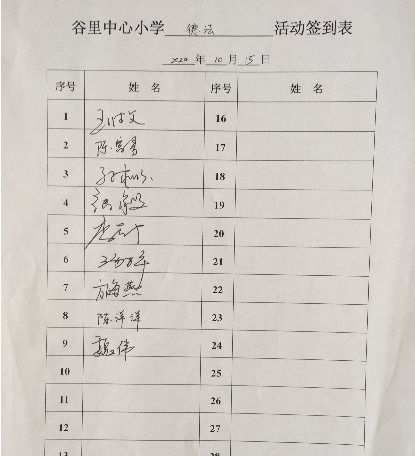 谷里中心小学 德法 活动签到表
2020 年 10 月 15 日
序号 姓 名 序号 姓 名
1 16
2 陈 17
3 18
4 19
5 20
6 21
7 方海燕 22
8 陈洋洋 23
9 魏伟 24
10 25
11 26
12 27
13 28